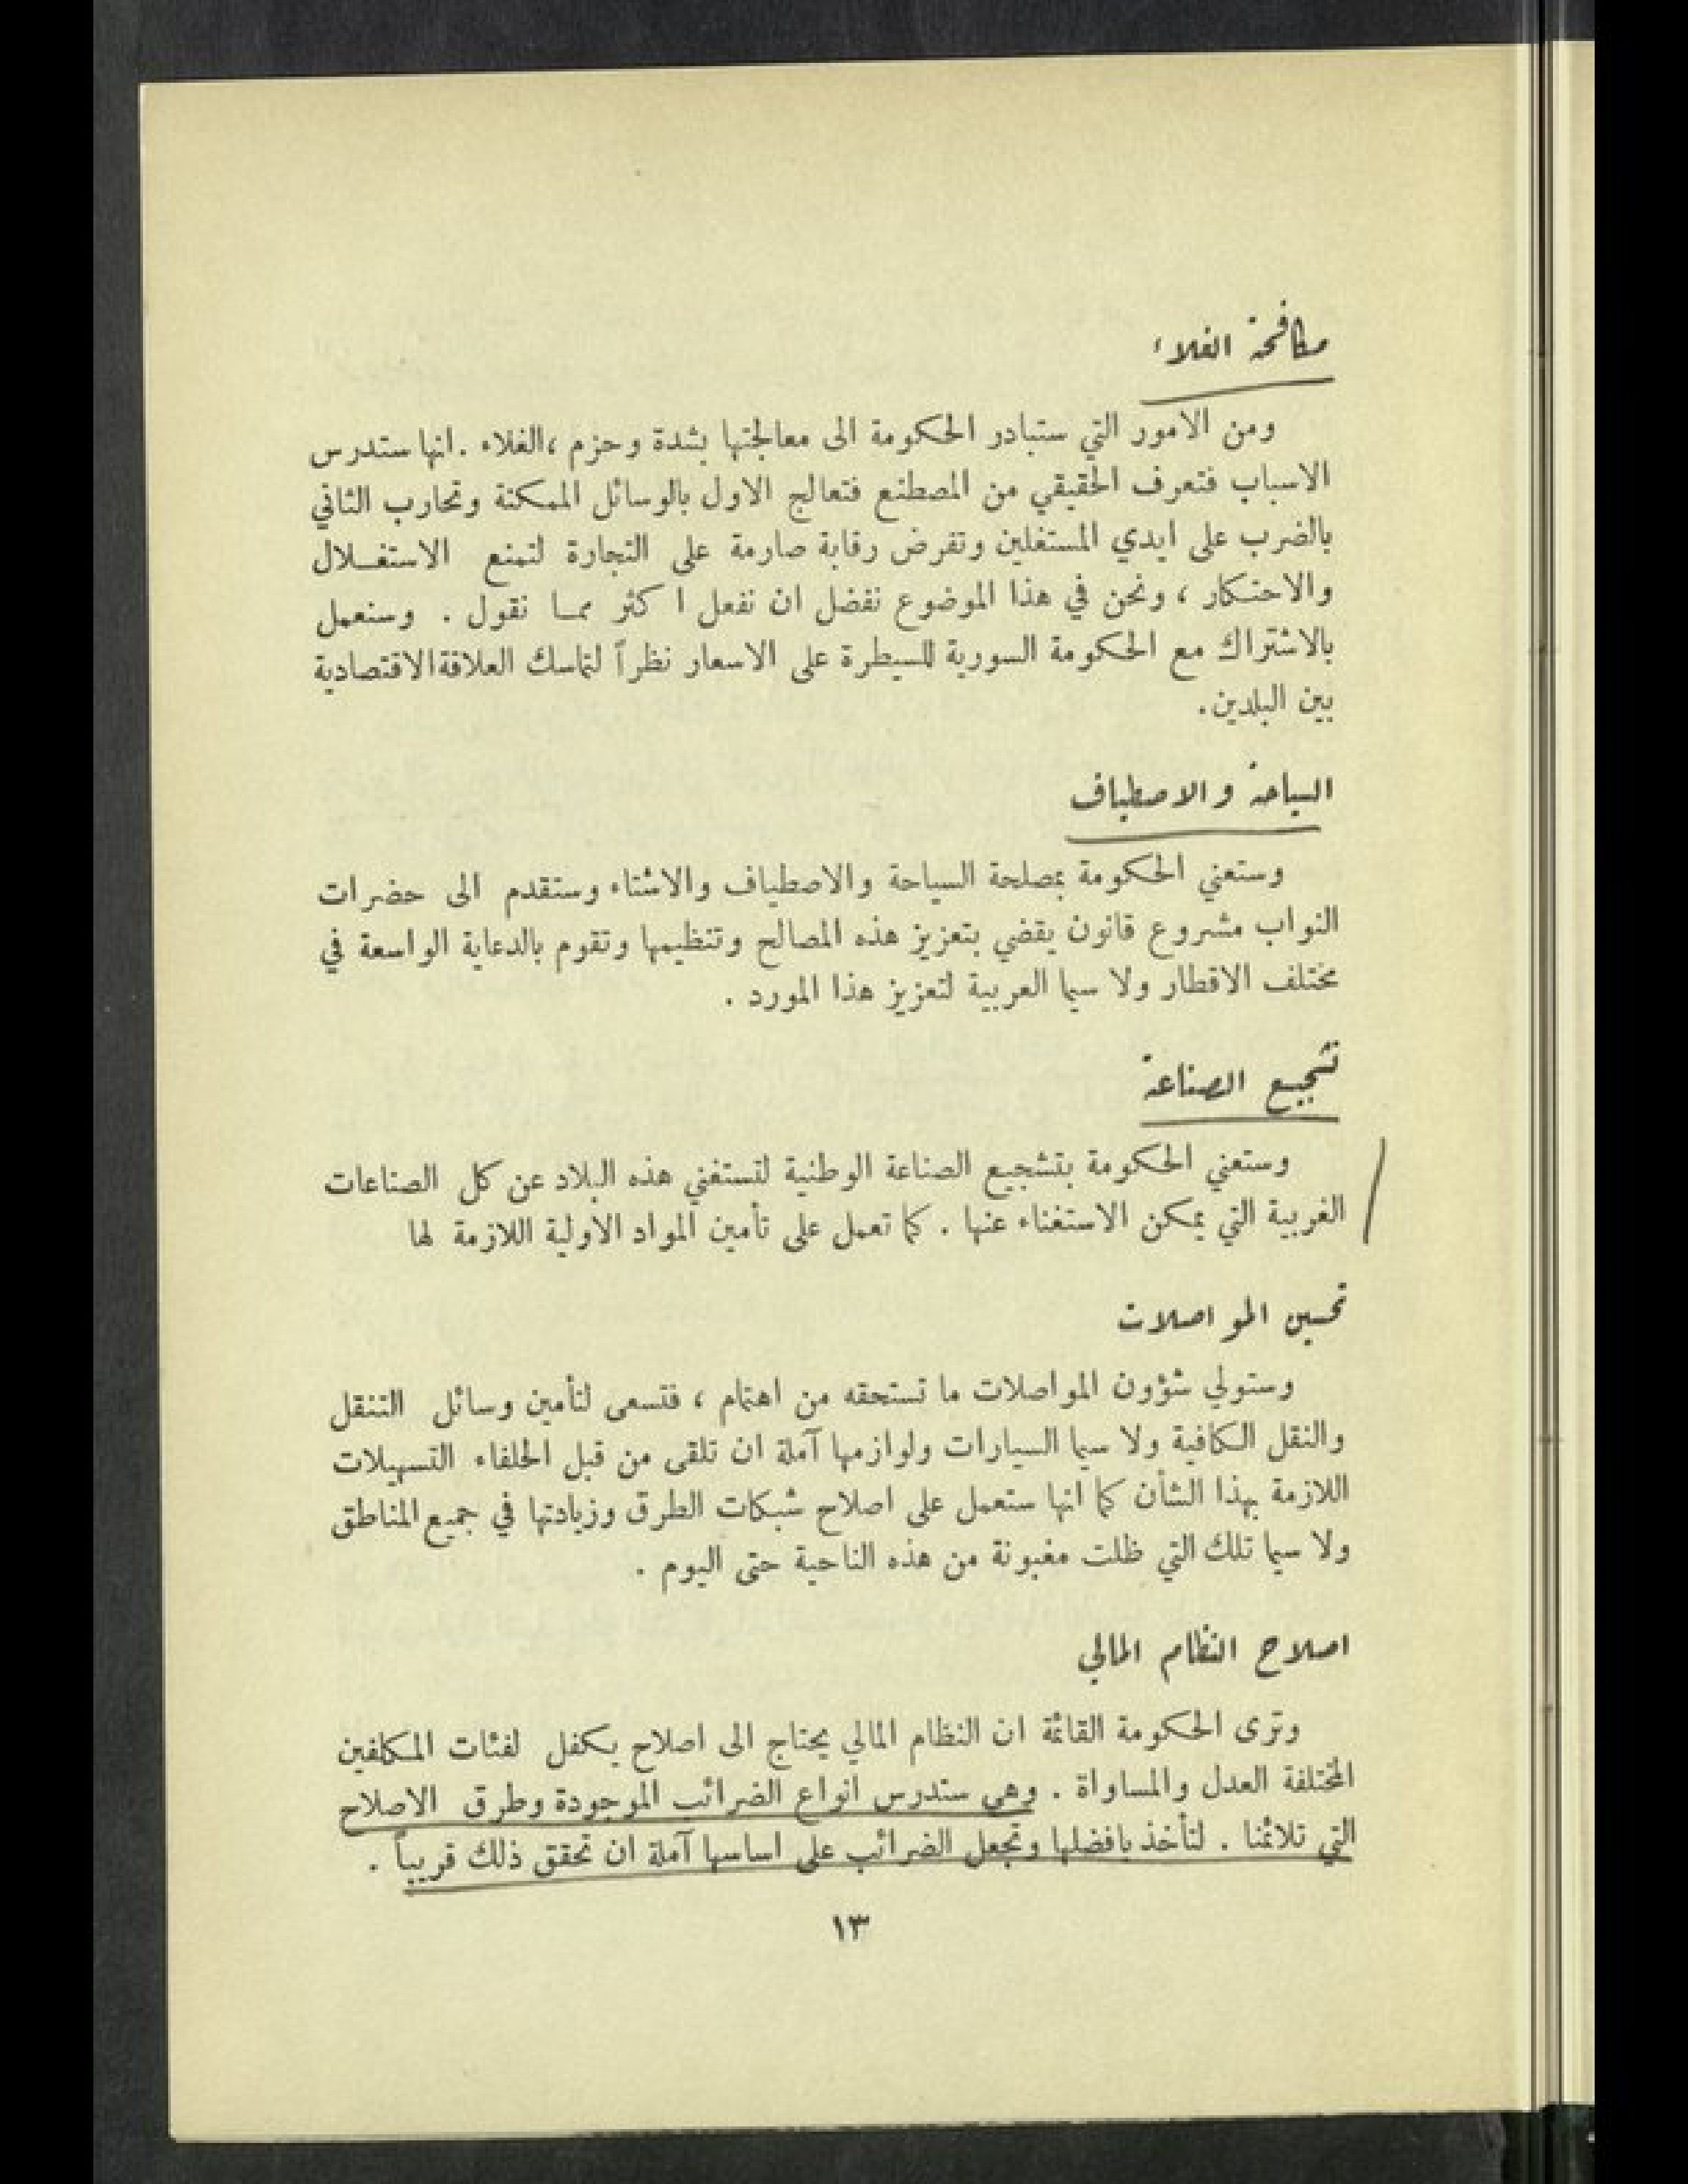 مكافحة الغلاء
ومن الامور التي ستبادر الحكومة الى معالجتها بشدة وحزم ،الغلاء .انها ستدرس
الاسباب فتعرف الحقيقي من المصطنع فتعالج الاول بالوسائل الممكنة وتحارب الثاني
بالضرب على ايدي المستغلين وتفرض رقابة صارمة على التجارة لتمنع الاستغـلال
والاحتكار ، ونحن في هذا الموضوع نفضل ان نفعل ا كثر ممـا نقول . وسنعمل
بالاشتراك مع الحكومة السورية للسيطرة على الاسعار نظراً لتماسك العلاقةالاقتصادية
بين البلدين.
السياحة والاصطياف
وستعني الحكومة بمصلحة السياحة والاصطياف والاشتاء وستقدم الى حضرات
النواب مشروع قانون يقضي بتعزيز هذه المصالح وتنظيمها وتقوم بالدعاية الواسعة في
مختلف الاقطار ولا سيما العربية لتعزيز هذا المورد .
تشجيع الصناعة
وستعني الحكومة بتشجيع الصناعة الوطنية لتستغني هذه البلاد عن كل الصناعات
الغربية التي يمكن الاستغناء عنها . كما تعمل على تأمين المواد الاولية اللازمة لها
تحسين المواصلات
وستولي شؤون المواصلات ما تستحقه من اهتمام ، فتسعى لتأمين وسائل التنقل
والنقل الكافية ولا سيما السيارات ولوازمها آملة ان تلقى من قبل الحلفاء التسهيلات
اللازمة بهذا الشأن كما انها ستعمل على اصلاح شبكات الطرق وزيادتها في جميع المناطق
ولا سيما تلك التي ظلت مغبونة من هذه الناحية حتى اليوم .
اصلاح النظام المالي
وترى الحكومة القائمة ان النظام المالي يحتاج الى اصلاح يكفل لفئات المكلفين
المختلفة العدل والمساواة . وهي ستدرس انواع الضرائب الموجودة وطرق الاصلاح
التي تلائمنا . لتأخذ بافضلها وتجعل الضرائب على اساسها آملة ان تحقق ذلك قريباً .
١٣